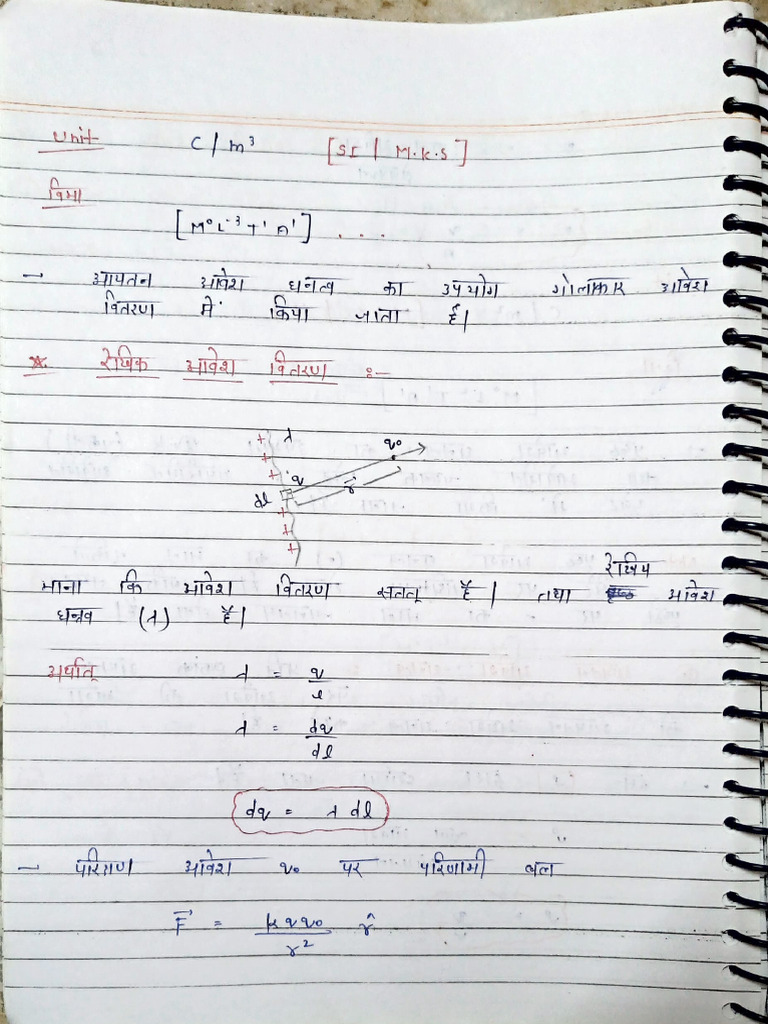 Unit C/m³ [SI / M.K.S]
विमा
[M⁰L⁻³T¹A¹] ...
– आयतन आवेश घनत्व का उपयोग गोलाकार आवेश
वितरण में किया जाता है।
* रेखिक आवेश वितरण :-
+ λ q₀
+
+ q
dl r⃗
+
+
+
रेखिय
माना कि आवेश वितरण सतत है। तथा आवेश
घनत्व (λ) है।
अर्थात् λ = q/l
λ = dq/dl
dq = λ dl
– परिक्षण आवेश q₀ पर परिणामी बल
F⃗ = kqq₀/r² r̂